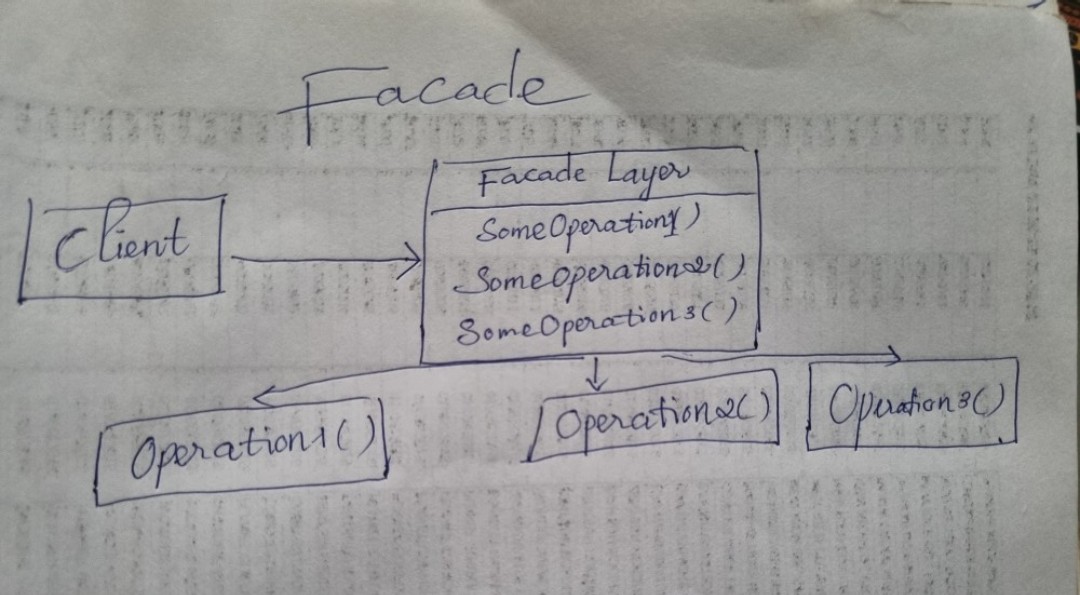 Facade
Facade Layer
Client
SomeOperation1()
SomeOperation2()
SomeOperation3()
Operation1()
Operation2()
Operation3()